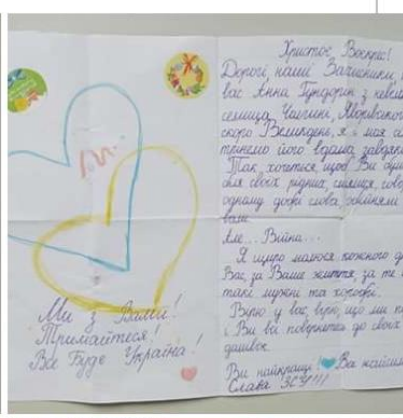 Ми з Вами!
Тримайтеся!
Все Буде Україна!
Христос Воскрес!
Дорогі наші Захисники,
вас Анна з
селища, Яворівського
скоро Великдень, я і моя
його вдома завдяки
Так хочеться, щоб Ви
біля своїх рідних,
добрі слова, обійняли
Але... Війна...
Я щиро молюся кожного
Вас, за Ваше життя, за те
такі мужні та хоробрі.
Вірю у вас, вірю, що ми
і Ви всі повернетеся до своїх
домівок.
Ви найкращі! Ви
Слава ЗСУ!!!